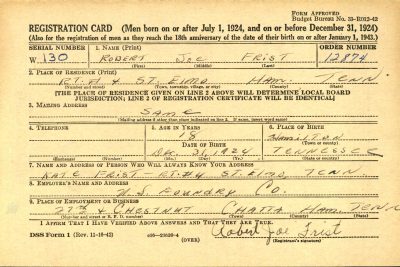 FORM APPROVED
Budget Bureau No. 33-R012-42
REGISTRATION CARD—(Men born on or after July 1, 1924, and on or before December 31, 1924)
(Also for the registration of men as they reach the 18th anniversary of the date of their birth on or after January 1, 1943.)
SERIAL NUMBER 1. NAME (Print) ORDER NUMBER
W 130 ROBERT JOE FRIST 12874
(First) (Middle) (Last)
2. PLACE OF RESIDENCE (Print)
RT. #4 ST. ELMO HAM. TENN
(Number and street) (Town, township, village, or city) (County) (State)
[THE PLACE OF RESIDENCE GIVEN ON LINE 2 ABOVE WILL DETERMINE LOCAL BOARD
JURISDICTION; LINE 2 OF REGISTRATION CERTIFICATE WILL BE IDENTICAL]
3. MAILING ADDRESS
SAME
(Mailing address if other than place indicated on line 2. If same, insert word same)
4. TELEPHONE 5. AGE IN YEARS 6. PLACE OF BIRTH
18 HAMILTON
DATE OF BIRTH (Town or county)
DEC. 31, 1924 TENNESSEE
(Exchange) (Number) (Mo.) (Day) (Yr.) (State or country)
7. NAME AND ADDRESS OF PERSON WHO WILL ALWAYS KNOW YOUR ADDRESS
KATE FRIST - RT. #4 ST. ELMO, TENN
8. EMPLOYER'S NAME AND ADDRESS
U.S. FOUNDRY CO.
9. PLACE OF EMPLOYMENT OR BUSINESS
27TH & CHESTNUT CHATTA HAM. TENN
(Number and street or R. F. D. number) (Town) (County) (State)
I AFFIRM THAT I HAVE VERIFIED ABOVE ANSWERS AND THAT THEY ARE TRUE.
DSS Form 1 (Rev. 11-16-42) (OVER) Robert Joe Frist
(Registrant's signature)